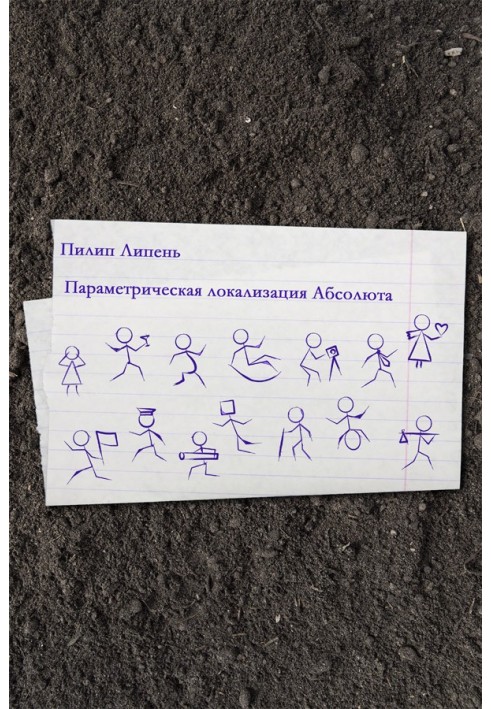 Пилип Липень
Параметрическая локализация Абсолюта